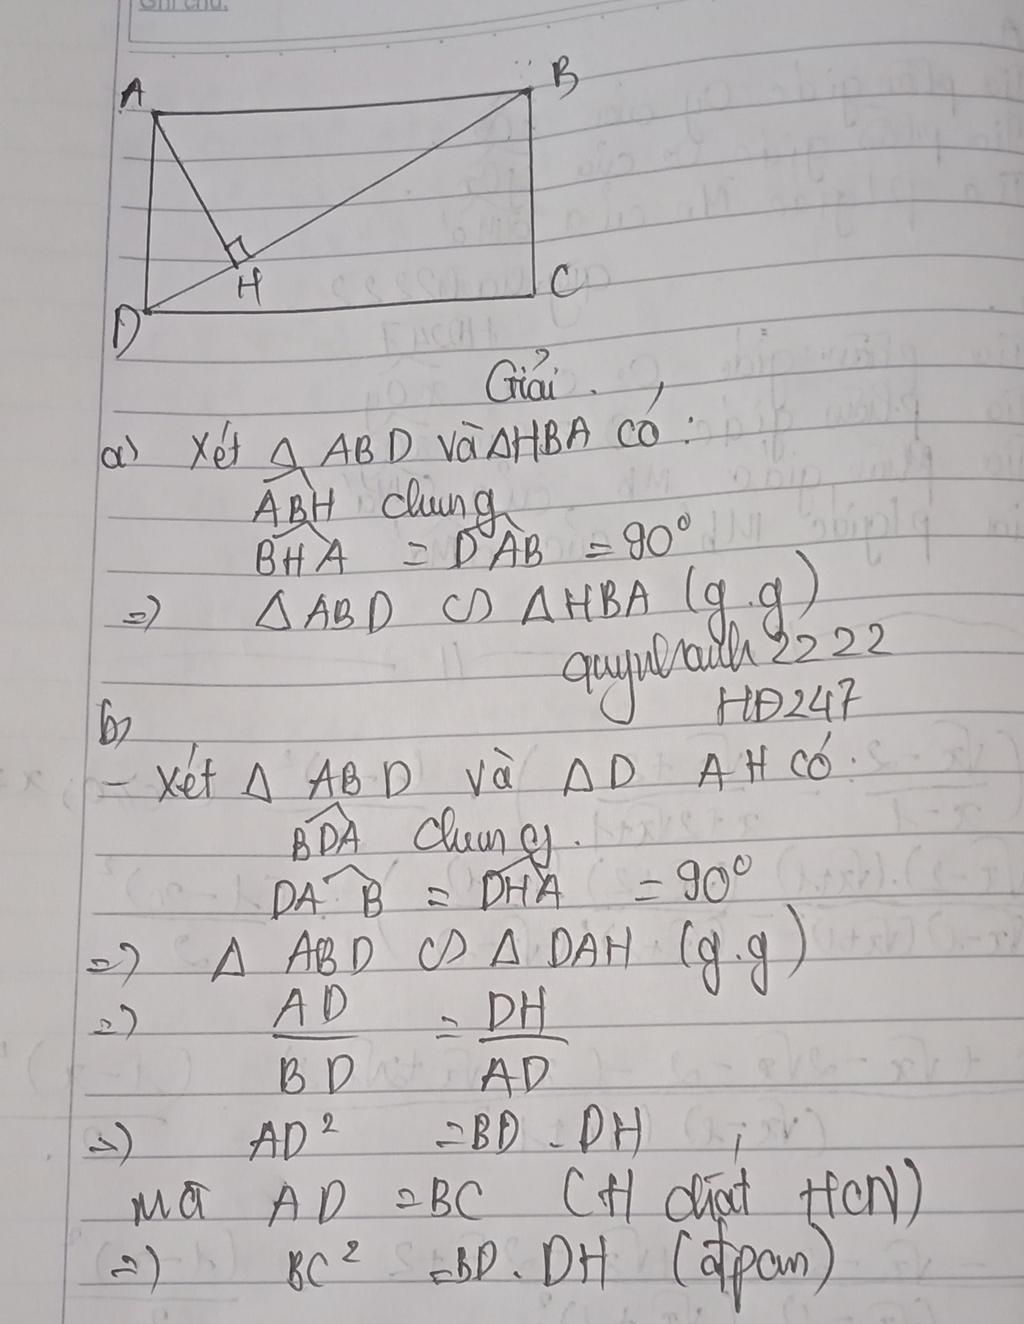 Ghi chú:
A
B
H
C
D
Giải.
a) Xét Δ ABD và ΔHBA có:
ABH chung
BHA = DAB = 90°
=) Δ ABD ∽ ΔHBA (g.g)
2222
HĐ247
b)
- Xét Δ ABD và ΔD AH có:
BDA chung.
DAB = DHA = 90°
=) Δ ABD ∽ Δ DAH (g.g)
=) AD/BD = DH/AD
=) AD² = BD . DH
mà AD = BC (H chất HCN)
=) BC² = BD . DH (đpcm)